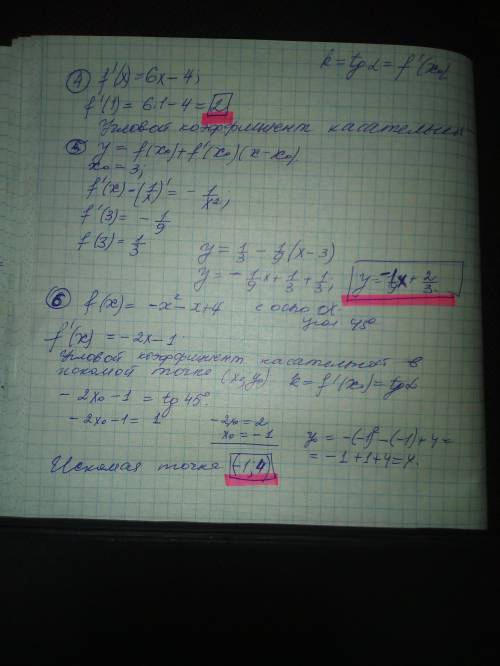 k = tg α = f'(x₀)
④ f'(x) = 6x - 4;
f'(1) = 6·1 - 4 = 2
Угловой коэффициент касательной
⑤ y = f(x₀) + f'(x₀)(x - x₀)
x₀ = 3;
f'(x) = (1/x)' = - 1/x²;
f'(3) = - 1/9
f(3) = 1/3
y = 1/3 - 1/9(x - 3)
y = - 1/9x + 1/3 + 1/3; y = -1/9x + 2/3.
⑥ f(x) = -x² - x + 4 с осью OX
угол 45°
f'(x) = -2x - 1.
Угловой коэффициент касательной в
искомой точке (x₀; y₀) k = f'(x₀) = tg α
- 2x₀ - 1 = tg 45°
- 2x₀ - 1 = 1
-2x₀ = 2
x₀ = -1
y = -(-1)² - (-1) + 4 =
= -1 + 1 + 4 = 4.
Искомая точка (-1; 4)